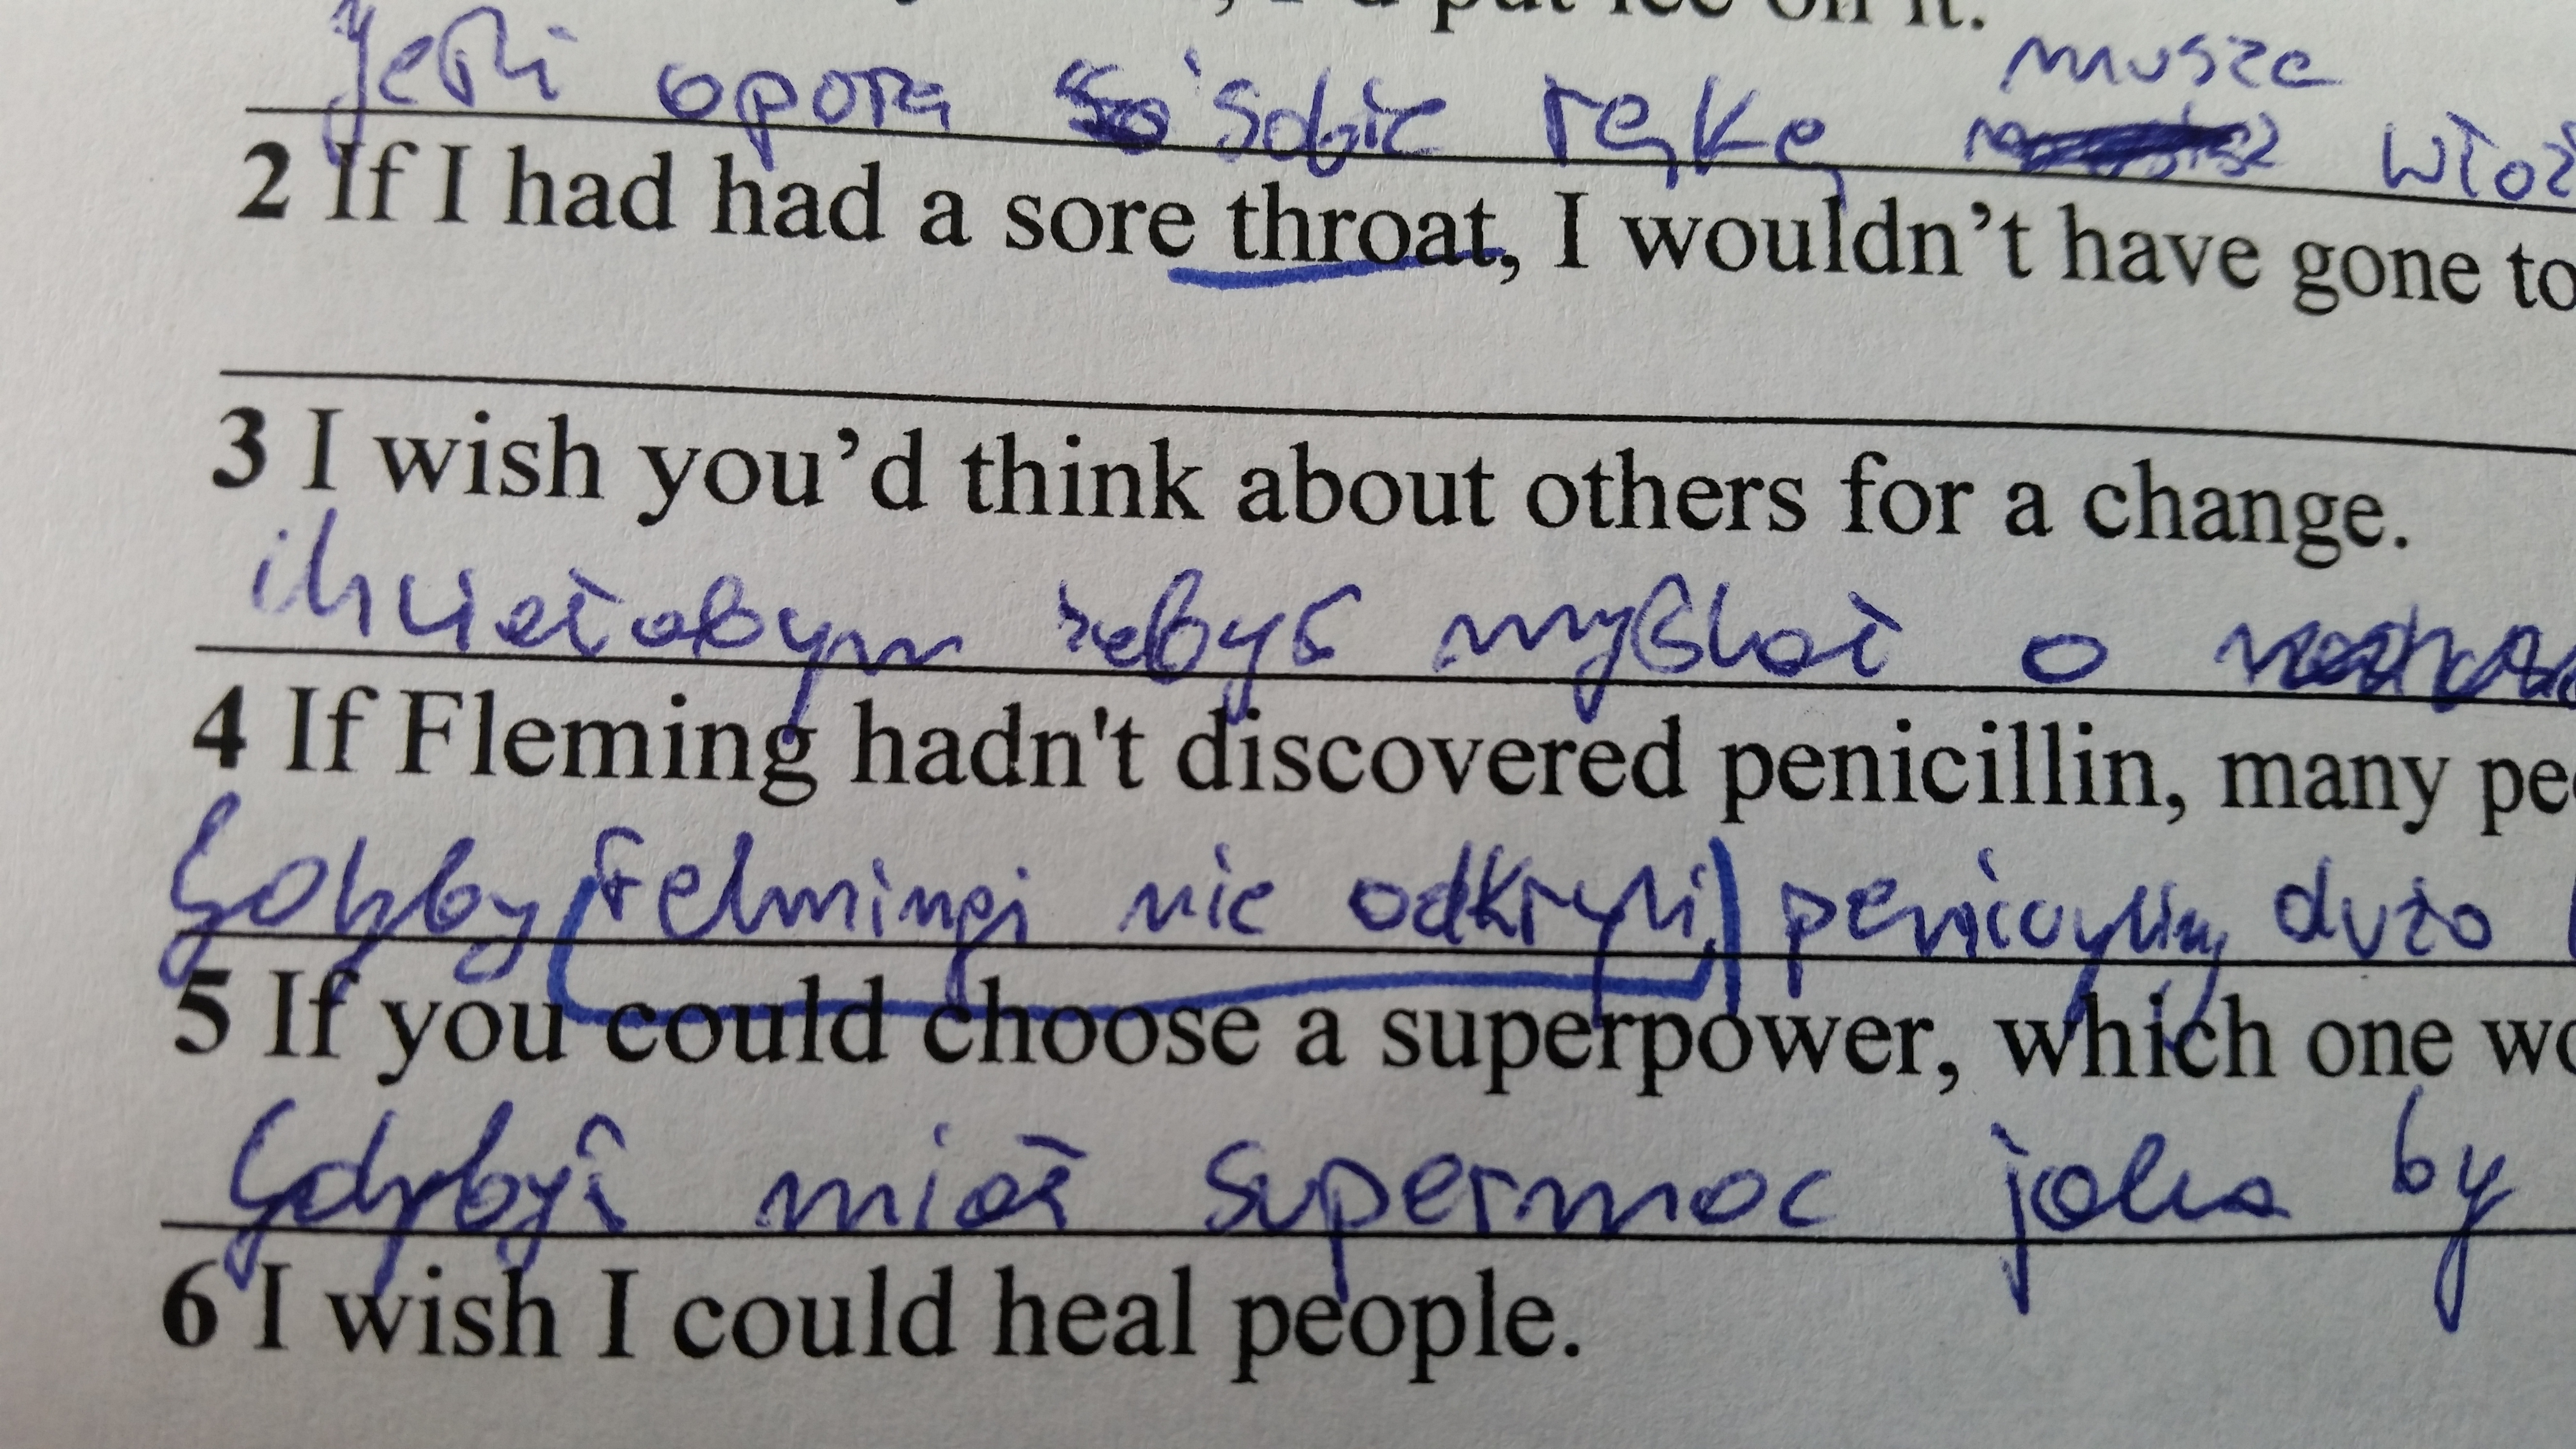 I'd put ice on it.
musze
Jeśli oparzę sobie rękę włoż
2 If I had had a sore throat, I wouldn't have gone to
3 I wish you'd think about others for a change.
chciałabym żebyś myślał o
4 If Fleming hadn't discovered penicillin, many pe
Gdyby Felmingi nie odkryli penicyliny dużo
5 If you could choose a superpower, which one wo
Gdybyś miał supermoc jaka by
6 I wish I could heal people.